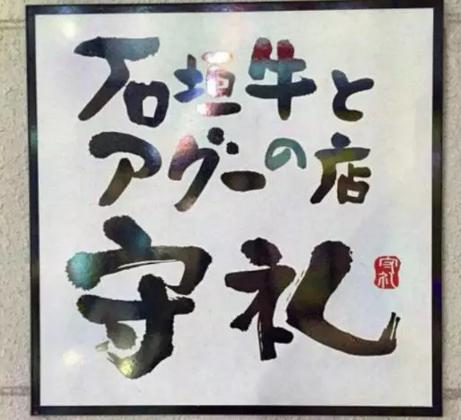 石垣牛と
アグーの店
守礼
守礼